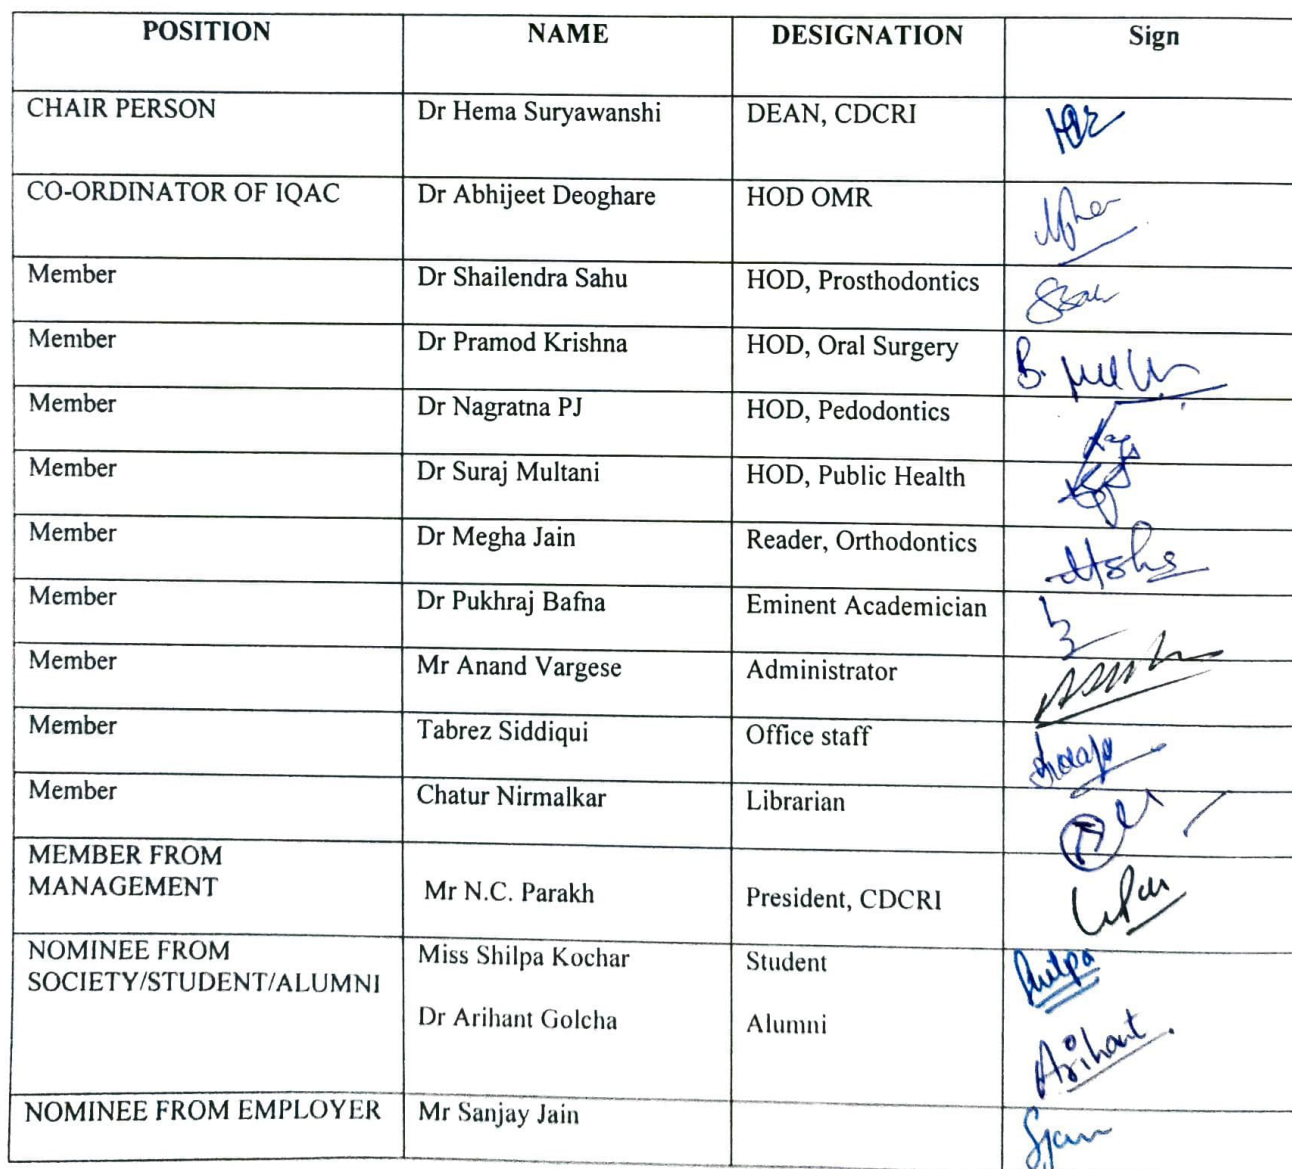 POSITION NAME DESIGNATION Sign
CHAIR PERSON Dr Hema Suryawanshi DEAN, CDCRI
CO-ORDINATOR OF IQAC Dr Abhijeet Deoghare HOD OMR
Member Dr Shailendra Sahu HOD, Prosthodontics
Member Dr Pramod Krishna HOD, Oral Surgery
Member Dr Nagratna PJ HOD, Pedodontics
Member Dr Suraj Multani HOD, Public Health
Member Dr Megha Jain Reader, Orthodontics
Member Dr Pukhraj Bafna Eminent Academician
Member Mr Anand Vargese Administrator
Member Tabrez Siddiqui Office staff
Member Chatur Nirmalkar Librarian
MEMBER FROM
MANAGEMENT Mr N.C. Parakh President, CDCRI
NOMINEE FROM Miss Shilpa Kochar Student Shilpa
SOCIETY/STUDENT/ALUMNI
Dr Arihant Golcha Alumni Arihant
NOMINEE FROM EMPLOYER Mr Sanjay Jain Sjain